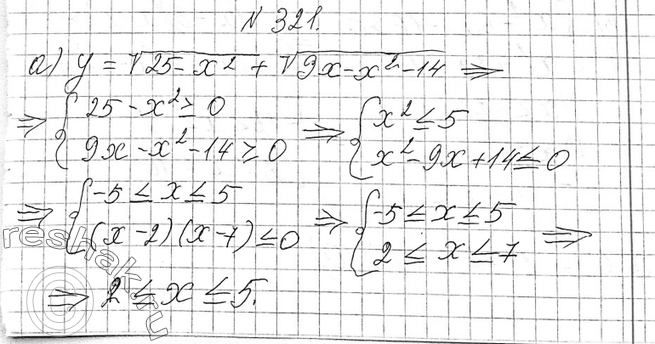 N 321.
а) y = √25-x² + √9x-x²-14 ⇒
⇒ { 25-x² ≥ 0
9x-x²-14 ≥ 0 ⇒ { x² ≤ 5
x²-9x+14 ≤ 0
⇒ { -5 ≤ x ≤ 5
(x-2)(x-7) ≤ 0 ⇒ { -5 ≤ x ≤ 5
2 ≤ x ≤ 7 ⇒
⇒ 2 ≤ x ≤ 5.
reshak.ru